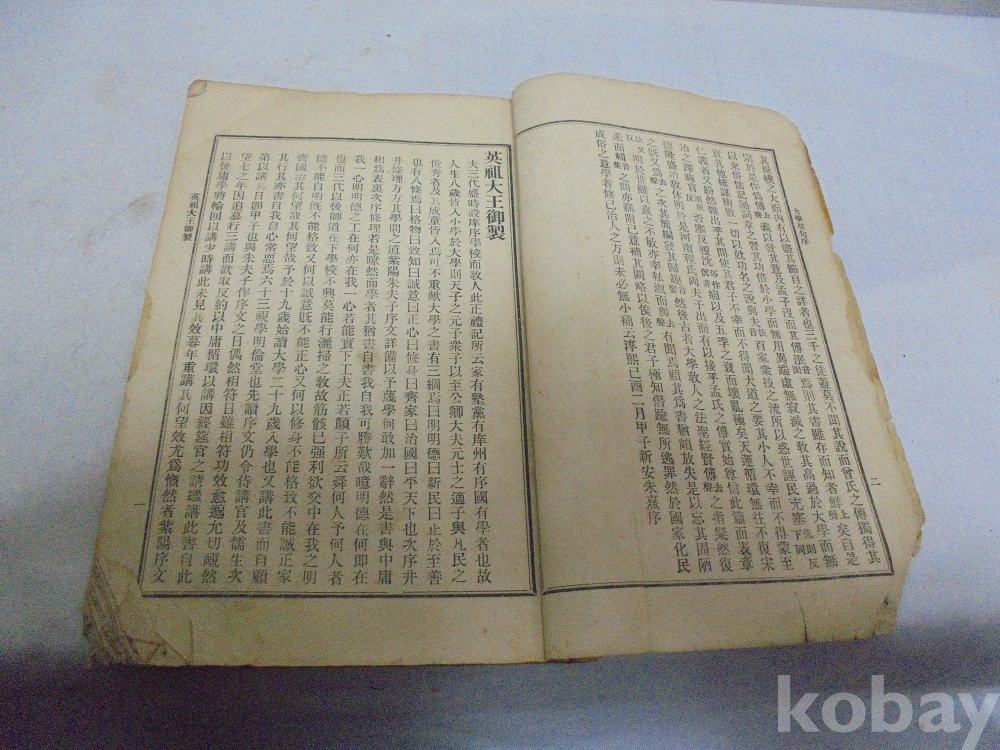 大學章句序
二
其規模之大而內有以盡其節目之詳者也三千之徒蓋莫不聞其說而曾氏之傳獨得其
宗於是作爲傳去聲義以發其意及孟子沒而其傳泯焉則其書雖存而知者鮮上聲矣自是
以來俗儒記誦詞章之習其功倍於小學而無用異端虛無寂滅之敎其高過於大學而無
實其他權謀術數一切以就功名之說與夫音扶百家衆技之流所以惑世誣民充塞
仁義者又紛然雜出乎其間使其君子不幸而不得聞大道之要其小人不幸而不得蒙至
治之澤晦盲否塞反覆沈痼以及五季之衰而壞亂極矣天運循環無往不復宋
德隆盛治敎休明於是河南程氏兩夫子出而有以接乎孟氏之傳實始尊信此篇而表章
之旣又爲去聲之次其簡編發其歸趣然後古者大學敎人之法聖經賢傳去聲之指粲然復
扶又反明於世雖以熹之不敏亦幸私淑而與去聲有聞焉顧其爲書猶頗放失是以忘其固陋
采而輯音集之間亦竊附己意補其闕略以俟後之君子極知僭踰無所逃罪然於國家化民
成俗之意學者修己治人之方則未必無小補云淳熙己酉二月甲子新安朱熹序
英祖大王御製
夫三代盛時設庠序學校而敎人此正禮記所云家有塾黨有庠州有序國有學者也故
人生八歲皆入小學於大學則天子之元子衆子以至公卿大夫元士之適子與凡民之
俊秀者及其成童皆入焉可不重歟大學之書有三綱焉曰明明德曰新民曰止於至善
也有八條焉曰格物曰致知曰誠意曰正心曰修身曰齊家曰治國曰平天下也次序井
井條理方方其學問之道紫陽朱夫子序文詳備以予蔑學何敢加一辭然是書與中庸
相爲表裏次序條理若是瞭然而學者其猶書自書我自我可勝歎哉噫明德在何卽在
我一心明明德之工在何亦在我一心若能實下工夫正若顏子所云舜何人予何人者
也而三代以後師道在下學校不興莫能行灑掃之敎故筋骸已强利欲交中在我之明
德不能自明旣不能格致又何以誠意旣不能正心又何以修身不能格致不能誠正家
齊國治其何望哉其何望哉予於十九歲始讀大學二十九歲入學也又講此書而自顧
其行其亦書自我自心常恧焉六十三視學明倫堂也先讀序文仍令侍講官及儒生次
第以講其日卽甲子也與朱夫子作序文之日偶然相符日雖相符功效愈邈尤切靦然
望七之年因追慕行三講而欲取反約以中庸循環以講因經筵官之請繼講此書自此
以後庸學將輪回以講少時講此未見其效暮年重講其何望效尤爲慨然者紫陽序文
英祖大王御製
一
kobay